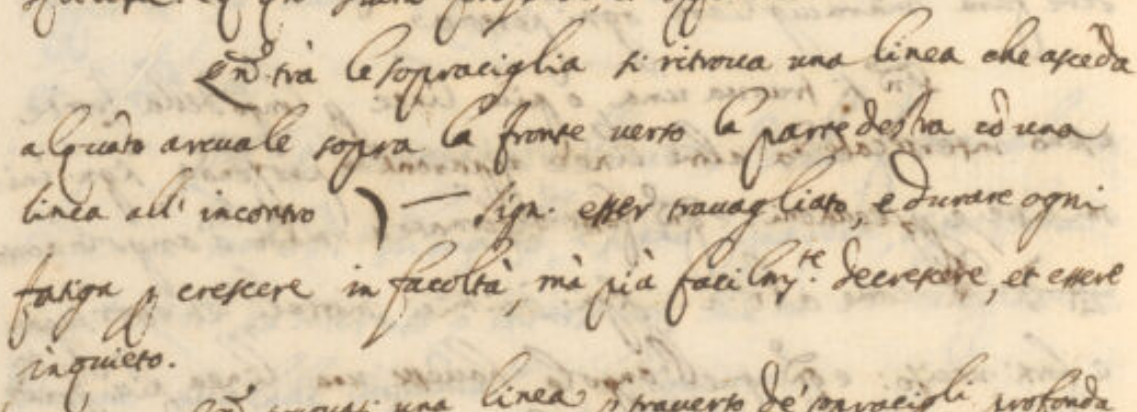 Qn̄. trà le sopraciglia si ritroua una linea che ascẽda
alquãto arcuale sopra la fronte uerso la parte destra cõ una
linea all' incontro ) — sign. esser trauagliato, e durare ogni
fatiga p crescere in facoltà, mà più facilmte. decrescere, et essere
inquieto.
una linea trauerso de' sopracigli profonda